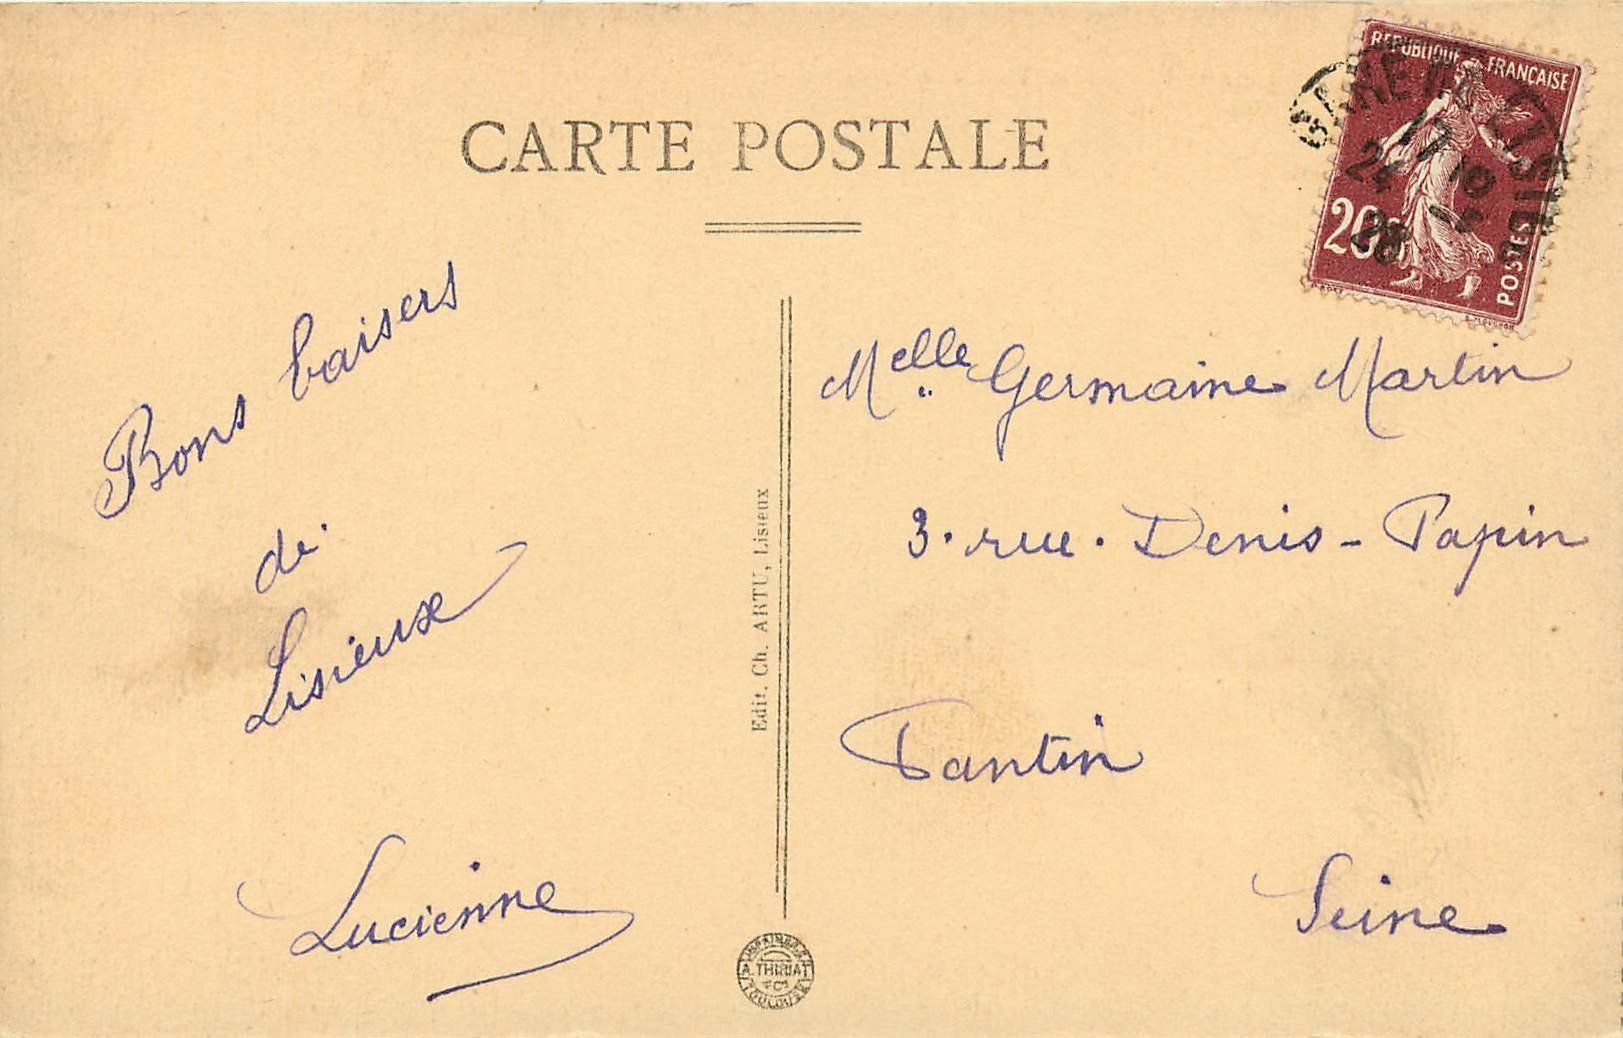 CARTE POSTALE
REPUBLIQUE FRANÇAISE
20c
POSTES
17 10
24
28
Bons baisers
de
Lisieux
Lucienne
Edit. Ch. ARTU, Lisieux
Melle Germaine Martin
3. rue. Denis-Papin
Pantin
Seine
A. THIRIAT
TOULOUSE